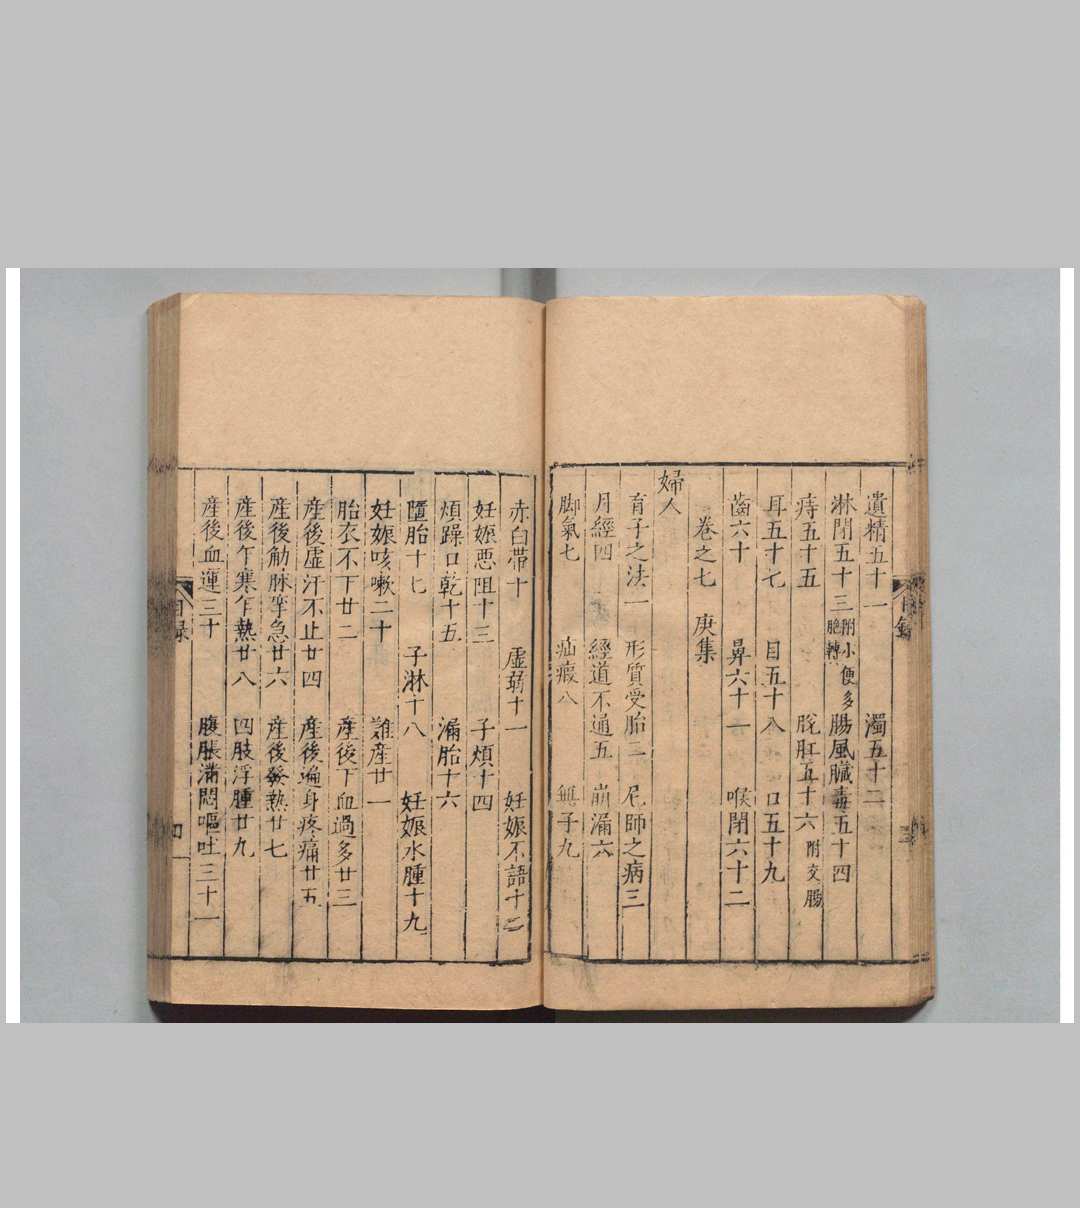 遺精五十一 濁五十二
淋閉五十三 附小便多 胞轉 腸風臟毒五十四
痔五十五 脫肛五十六 附交腸
耳五十七 目五十八 口五十九
齒六十 鼻六十一 喉閉六十二
卷之七 庚集
婦人
育子之法一 形質受胎二 尼師之病三
月經四 經道不通五 崩漏六
脚氣七 疝瘕八 無子九
赤白帶十 虛弱十一 妊娠不語十二
妊娠惡阻十三 子煩十四
煩躁口乾十五 漏胎十六
墮胎十七 子淋十八 妊娠水腫十九
妊娠咳嗽二十 難產廿一
胎衣不下廿二 產後下血過多廿三
產後虛汗不止廿四 產後遍身疼痛廿五
產後觔脉攣急廿六 產後發熱廿七
產後乍寒乍熱廿八 四肢浮腫廿九
產後血運三十 腹脹滿悶嘔吐三十一
目錄
四